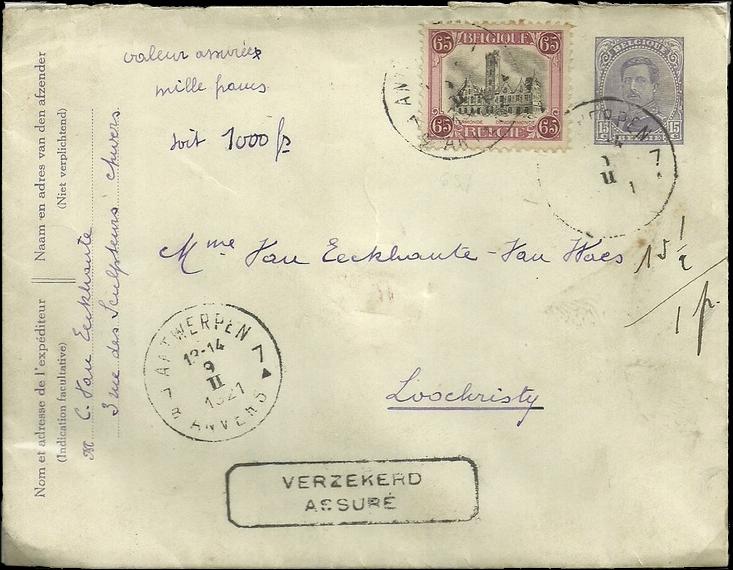 valeur assurée
mille francs
soit 1000 fr
BELGIQUE
65 65
65 65
BELGIË
BELGIQUE
15 15
BELGIË
7
Mme Van Eeckhaute-Van Waes
15 1/2
1 fr.
Loochristy
ANTWERPEN 7
13-14
9
II
1921
ANVERS
VERZEKERD
ASSURÉ
Nom et adresse de l'expéditeur || Naam en adres van den afzender
(Indication facultative) (Niet verplichtend)
M C. Van Eeckhaute
3 rue des Sculpteurs Anvers